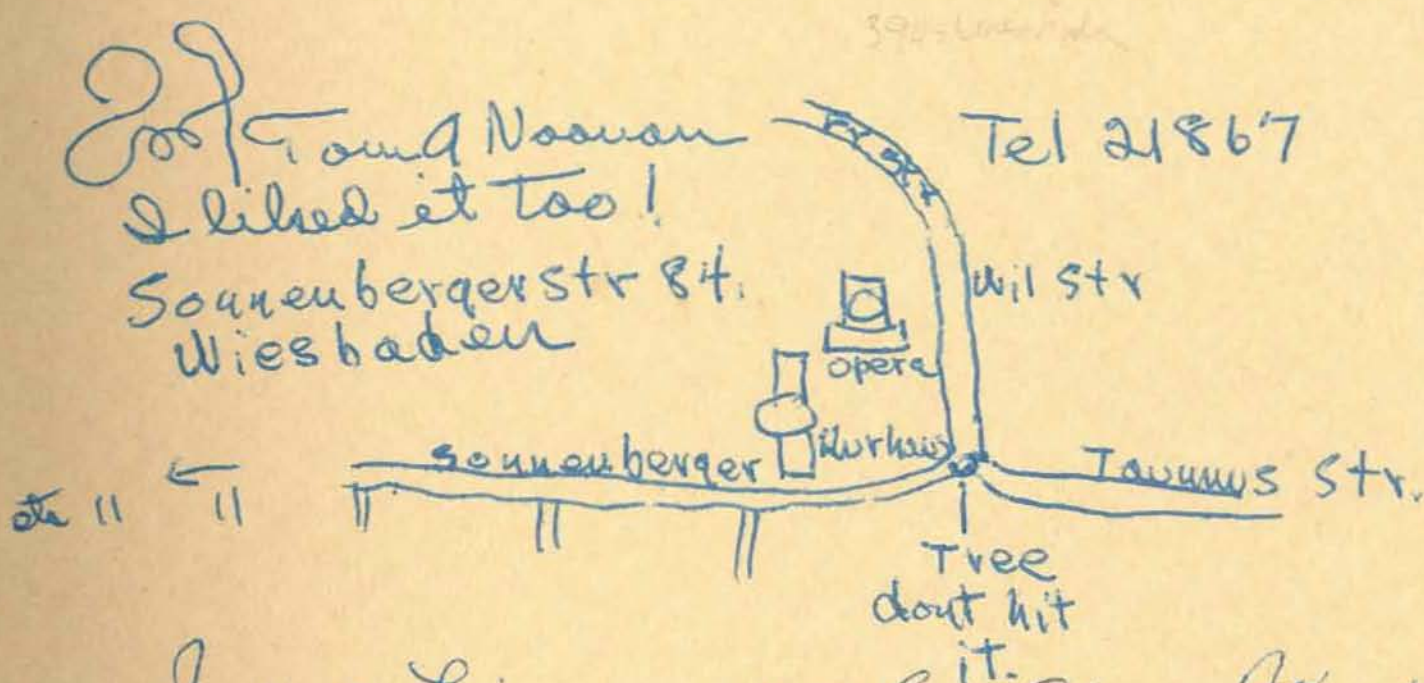 Tom A Noonan
I liked it Too!
Sonnenbergerstr 84.
Wiesbaden
Tel 21867
Wil str
opera
Kurhaus
Sonnenberger
Taunus Str.
Tree
dont hit
it.